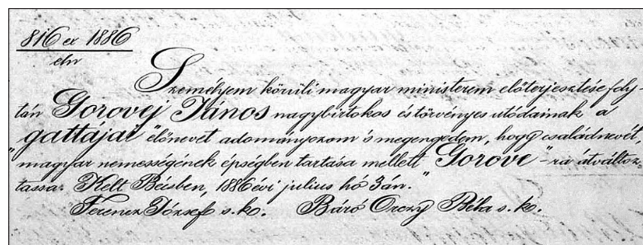 816 ex 1886
eln
Személyem körüli magyar ministerem előterjesztése foly-
tán Gorovej János nagybirtokos és törvényes utódainak a
"gattajai" előnevet adományozom s megengedem, hogy családnevét,
magyar nemességének épségben tartása mellett "Gorove"-ra átváltoz-
tassa. Kelt Bécsben, 1886 évi julius hó 3án."
Ferencz József s.k. Báró Orczy Béla s.k.